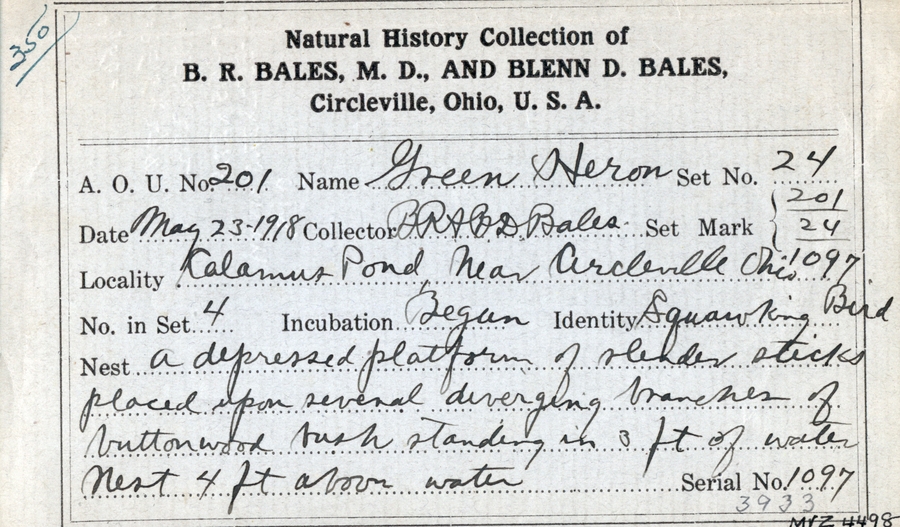 350
Natural History Collection of
B. R. BALES, M. D., AND BLENN D. BALES,
Circleville, Ohio, U. S. A.
A. O. U. No. 201 Name Green Heron Set No. 24
Date May 23-1918 Collector BR & BD Bales Set Mark 201/24
Locality Kalamus Pond, Near Circleville Ohio 1097
No. in Set 4 Incubation Begun Identity Squawking Bird
Nest a depressed platform of slender sticks
placed upon several diverging branches of
buttonwood bush standing in 3 ft of water
Nest 4 ft above water Serial No. 1097
3933
MVZ 4498